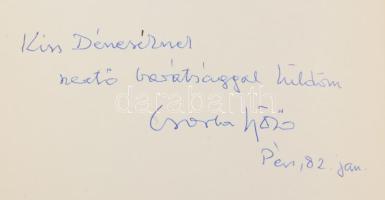 Kiss Déneséknek
szerető barátsággal küldöm
Csorba Győző
Pécs, 82. jan.
darabanth